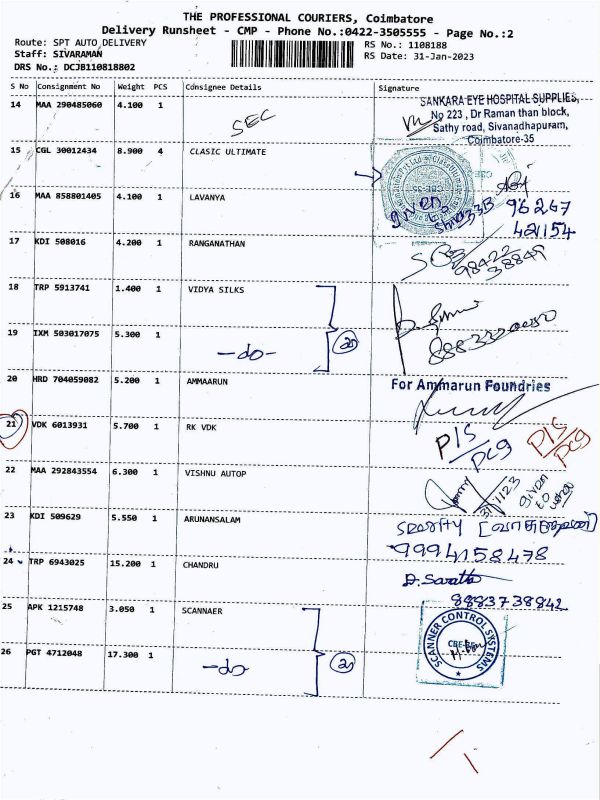 THE PROFESSIONAL COURIERS, Coimbatore
Delivery Runsheet - CMP - Phone No.:0422-3505555 - Page No.:2
Route: SPT AUTO DELIVERY
RS No.: 1108188
Staff: SIVARAMAN
RS Date: 31-Jan-2023
DRS No.: DCJB110818802
S No Consignment No Weight PCS Consignee Details Signature
14 MAA 290485060 4.100 1 SEC
SANKARA EYE HOSPITAL SUPPLIES,
No 223 , Dr Raman than block,
Sathy road, Sivanadhapuram,
Coimbatore-35
15 CGL 30012434 8.900 4 CLASIC ULTIMATE
CBE-35
16 MAA 858801405 4.100 1 LAVANYA
given
96267
42154
17 KDI 508016 4.200 1 RANGANATHAN
98422
38849
18 TRP 5913741 1.400 1 VIDYA SILKS
19 IXM 503017075 5.300 1 -do-
20 HRD 704059082 5.200 1 AMMAARUN
For Ammarun Foundries
21 VDK 6013931 5.700 1 RK VDK
P/S
PC9
P/S
PC9
22 MAA 292843554 6.300 1 VISHNU AUTOP
given
to
23 KDI 509629 5.550 1 ARUNANSALAM
9994158478
24 TRP 6943025 15.200 1 CHANDRU
D. Sarath
8883738842
25 APK 1215748 3.050 1 SCANNAER
SCANNER CONTROL SYSTEMS
26 PGT 4712048 17.300 1 -do-